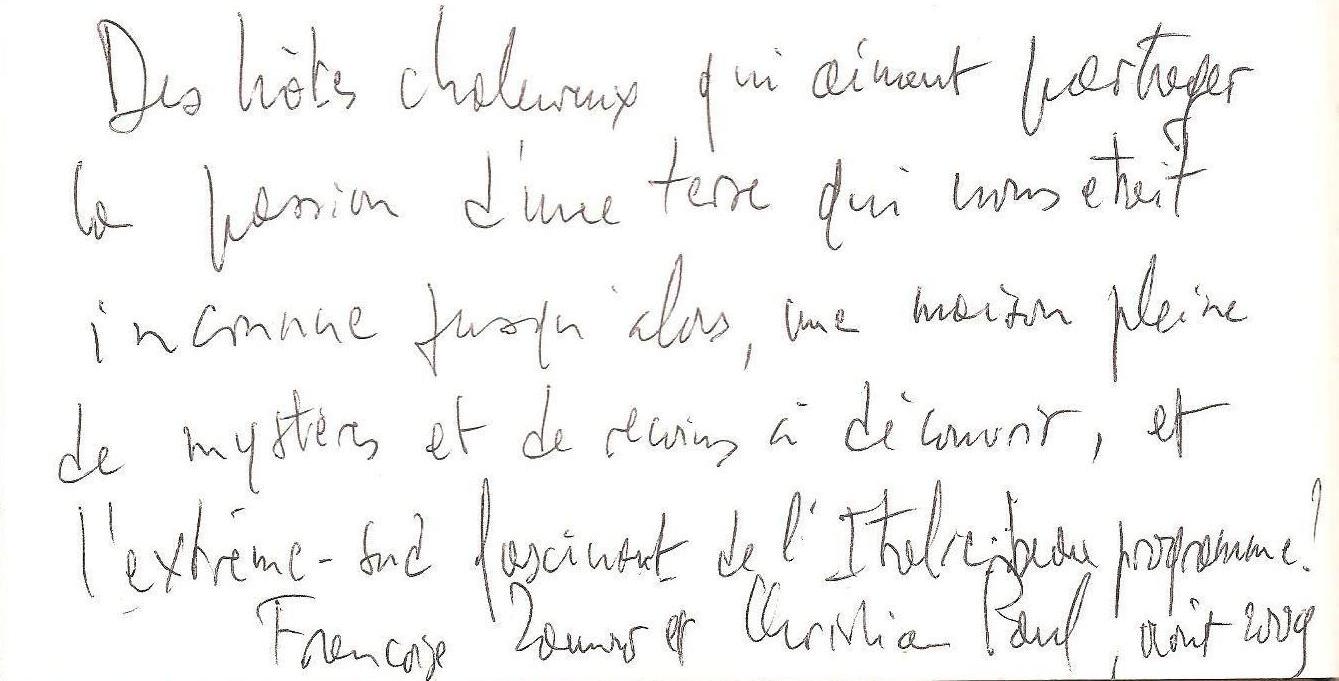 Des hôtes chaleureux qui aiment partager
la passion d'une terre qui nous était
inconnue jusqu'alors, une maison pleine
de mystères et de recoins à découvrir, et
l'extrême-sud fascinant de l'Italie: beau programme!
Françoise et Christian Paul, août 2009